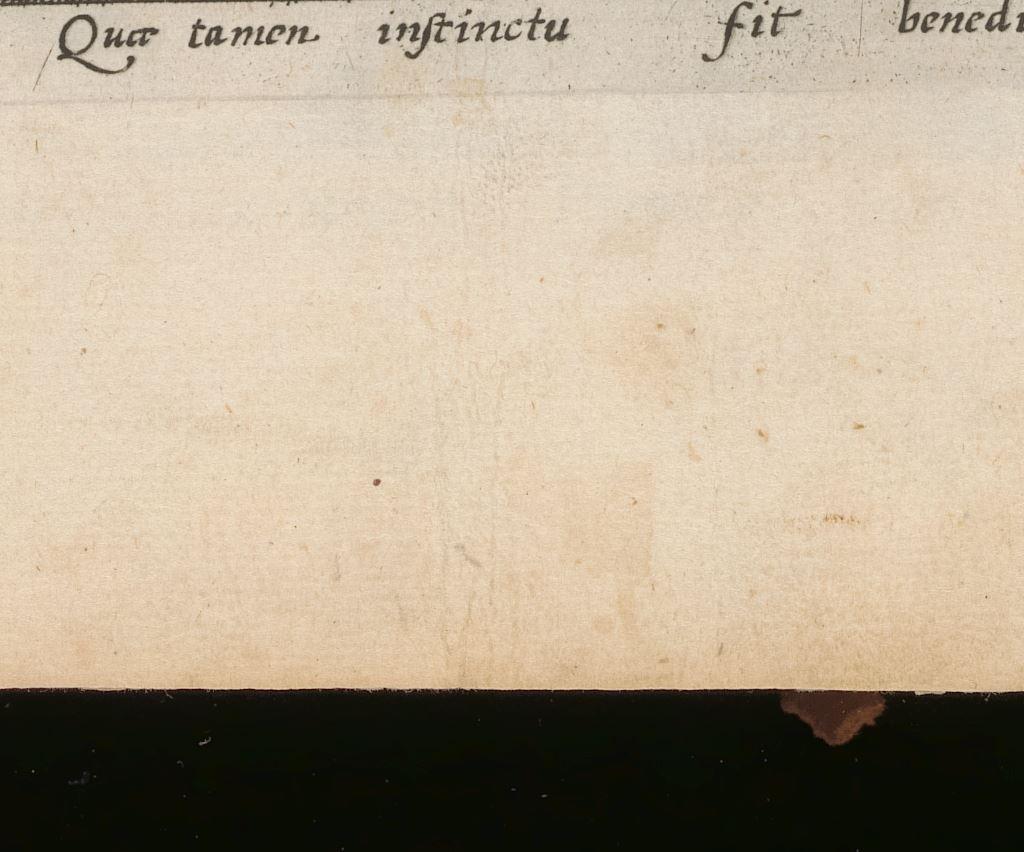 Quæ tamen inſtinctu fit bened